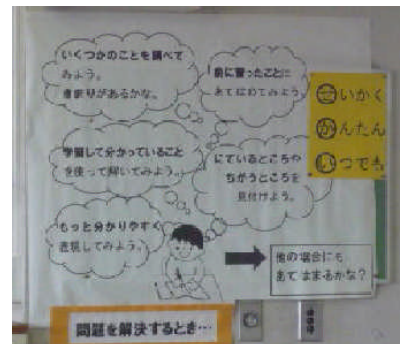 いくつかのことを調べて
みよう。
きまりがあるかな。
前に習ったことに
あてはめてみよう。
学習して分かっていること
を使って解いてみよう。
にているところや
ちがうところを
見付けよう。
もっと分かりやすく
表現してみよう。
せいかく
かんたん
いつでも
他の場合にも
あてはまるかな?
問題を解決するとき…